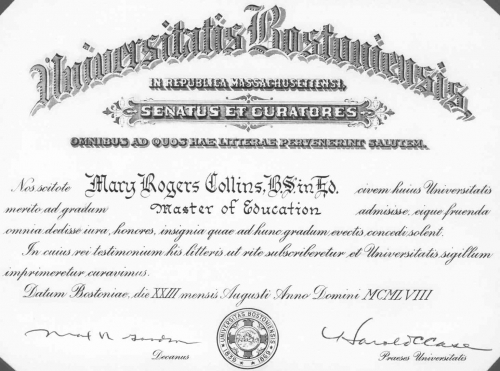 Universitatis Bostoniensis,
IN REPUBLICA MASSACHUSETTENSI,
SENATUS ET CURATORES
OMNIBUS AD QUOS HAE LITTERAE PERVENERINT SALUTEM.
Nos scitote Mary Rogers Collins, B.S. in Ed. civem huius Universitatis
merito ad gradum Master of Education admisisse, eique fruenda
omnia dedisse iura, honores, insignia quae ad hunc gradum evectis concedi solent.
In cuius rei testimonium his litteris ut rite subscriberetur et Universitatis sigillum
imprimeretur curavimus.
Datum Bostoniae, die XXIII mensis Augusti Anno Domini MCMLVIII
UNIVERSITAS BOSTONIENSIS
1839 1869
Harold C Case
Decanus
Praeses Universitatis